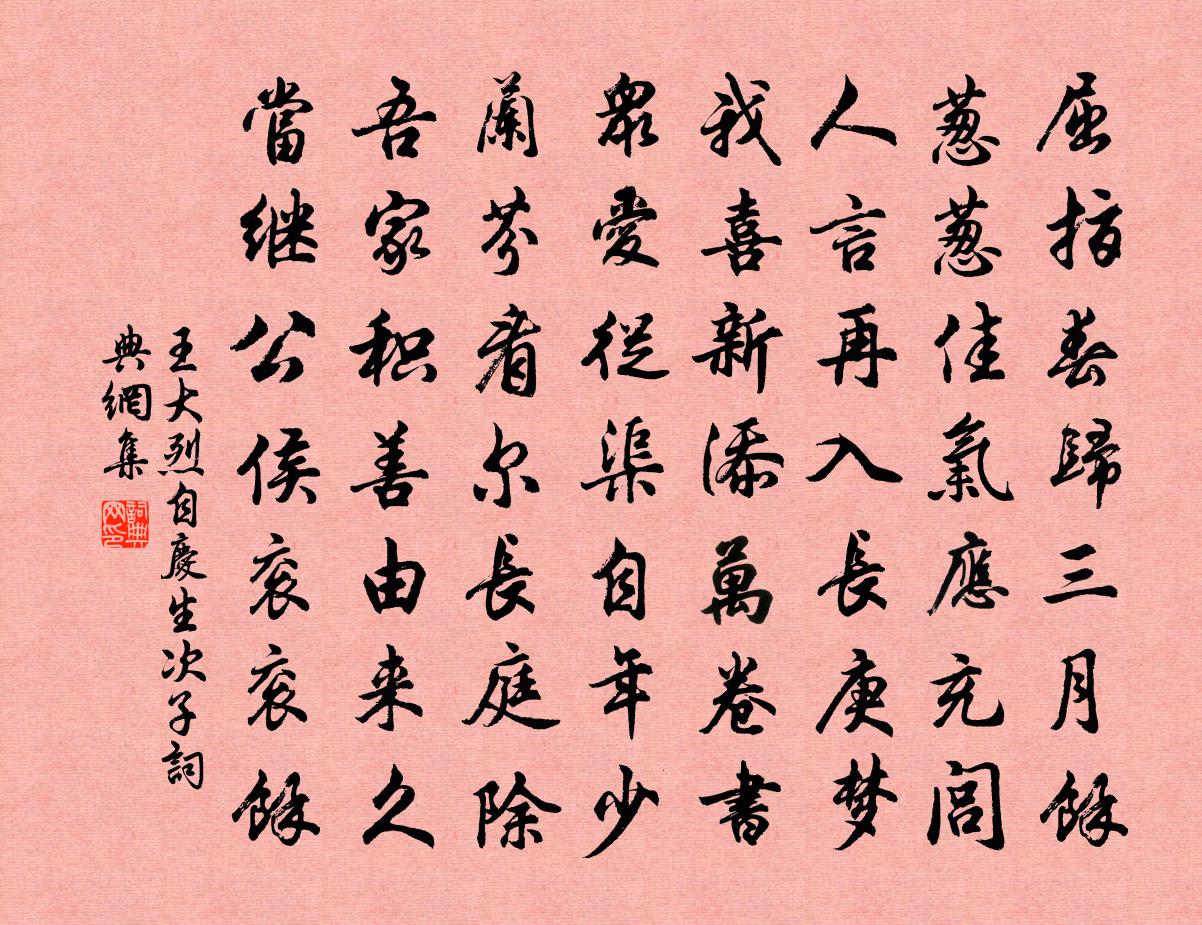 屈指春歸三月餘
葱葱佳氣應充閭
人言再入長庚梦
我喜新添萬卷書
衆愛從渠自年少
蘭芬看尔長庭除
吾家积善由来久
當继公侯衮衮餘
王大烈自慶生次子詞
典網集
詞典
网印